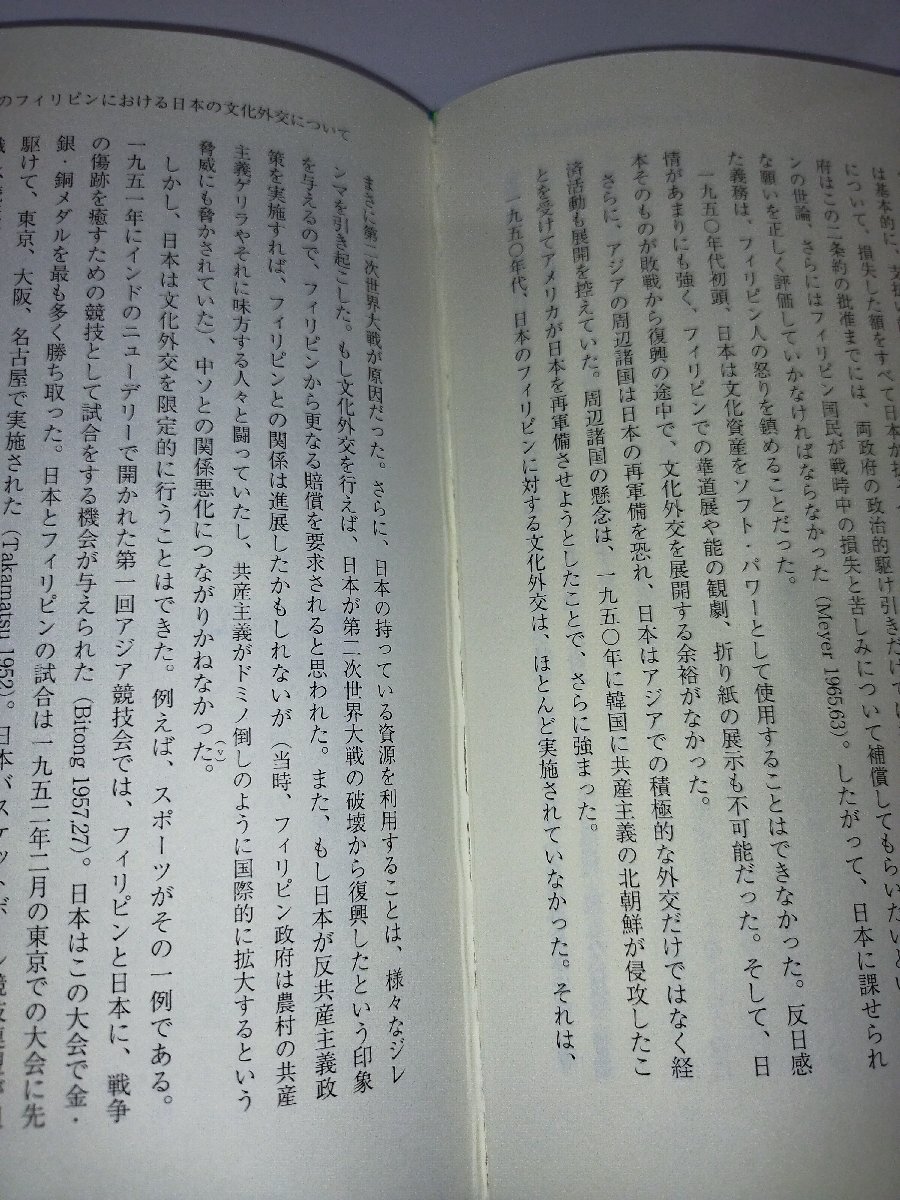 は基本的に、支払い
について、損失した額をすべて日本が
府はこの二条約の批准までには、両政府の政治的駆け引きだけ
ンの世論、さらにはフィリピン国民が戦時中の損失と苦しみについて補償してもらいたいとい
な願いを正しく評価していかなければならなかった（Meyer 1965:63）。したがって、日本に課せられ
た義務は、フィリピン人の怒りを鎮めることだった。
一九五〇年代初頭、日本は文化資産をソフト・パワーとして使用することはできなかった。反日感
情があまりにも強く、フィリピンでの華道展や能の観劇、折り紙の展示も不可能だった。そして、日
本そのものが敗戦から復興の途中で、文化外交を展開する余裕がなかった。
さらに、アジアの周辺諸国は日本の再軍備を恐れ、日本はアジアでの積極的な外交だけではなく経
済活動も展開を控えていた。周辺諸国の懸念は、一九五〇年に韓国に共産主義の北朝鮮が侵攻したこ
とを受けてアメリカが日本を再軍備させようとしたことで、さらに強まった。
一九五〇年代、日本のフィリピンに対する文化外交は、ほとんど実施されていなかった。それは、
のフィリピンにおける日本の文化外交について
まさに第二次世界大戦が原因だった。さらに、日本の持っている資源を利用することは、様々なジレ
ンマを引き起こした。もし文化外交を行えば、日本が第二次世界大戦の破壊から復興したという印象
を与えるので、フィリピンから更なる賠償を要求されると思われた。また、もし日本が反共産主義政
策を実施すれば、フィリピンとの関係は進展したかもしれないが（当時、フィリピン政府は農村の共産
主義ゲリラやそれに味方する人々と闘っていたし、共産主義がドミノ倒しのように国際的に拡大するという
脅威にも脅かされていた）、中ソとの関係悪化につながりかねなかった。（v）
しかし、日本は文化外交を限定的に行うことはできた。例えば、スポーツがその一例である。
一九五一年にインドのニューデリーで開かれた第一回アジア競技会では、フィリピンと日本に、戦争
の傷跡を癒すための競技として試合をする機会が与えられた（Bitong 1957:27）。日本はこの大会で金・
銀・銅メダルを最も多く勝ち取った。日本とフィリピンの試合は一九五二年二月の東京での大会に先
駆けて、東京、大阪、名古屋で実施された（Takamatsu 1952）。日本バスケットボー